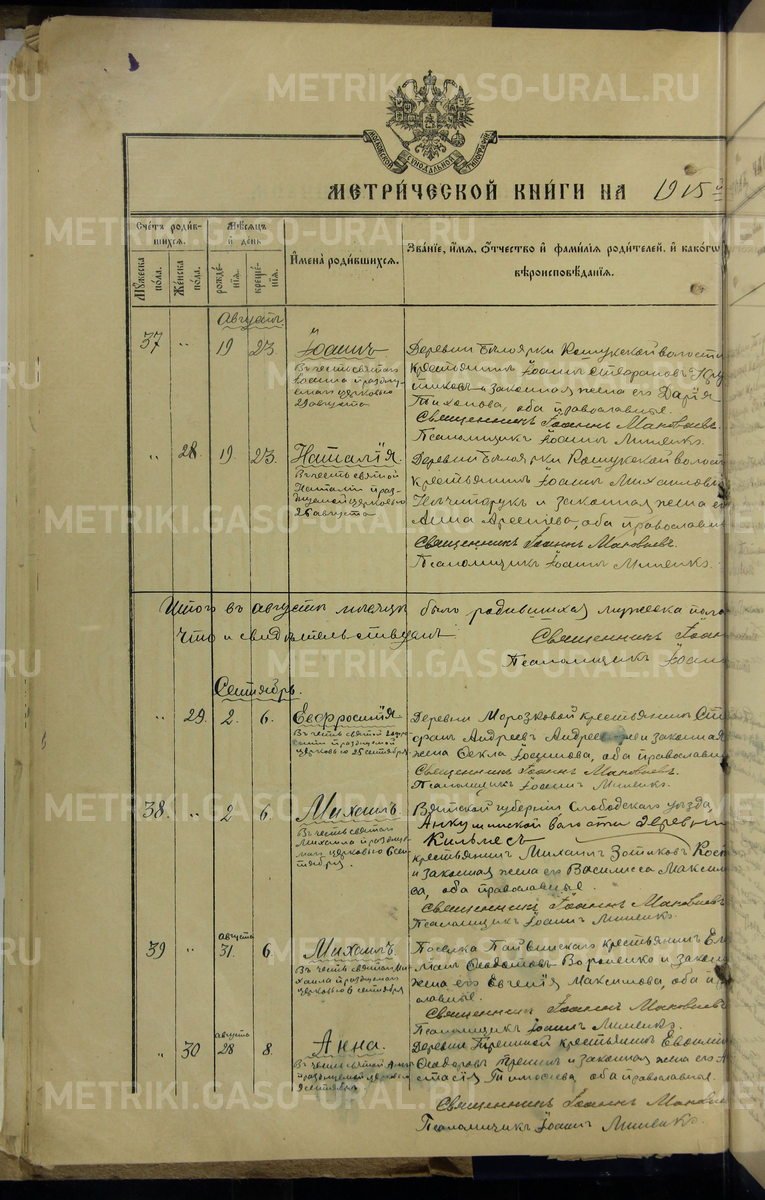 METRIKI.GASO-URAL.RU
МОСКОВСКОЙ СѴНОДАЛЬНОЙ ТИПОГРАФІИ
МЕТРИ́ЧЕСКОЙ КНИ́ГИ НА 1915й
Счетъ роди́в-
шихся.
Мѣсяцъ
и день
Мужеска пола.
Же́нска пола.
рожде́-
нія.
креще-
нія.
Имена̀ роди́вшихся.
Зва́ніе, и́мя, о́тчество и фами́лія роди́телей, и како́гѡ
вѣроисповѣ́данія.
Августъ
37 " 19 23 Іоаннъ
Въ честь святаго
Іоанна праздну-
емаго церковью
29 августа
Деревни Бѣлоярки Кошукской волости
крестьянинъ Іоаннъ Стефановъ
и законная жена его Дарія
Тихонова, оба православные.
Священникъ Іоаннъ
Псаломщикъ Іоаннъ
" 28 19 23 Наталія.
Въ честь святой
Наталіи праз-
днуемой церковью
26 августа
Деревни Бѣлоярки Кошукской волост
крестьянинъ Іоаннъ Михаиловъ
Ничипорукъ и законная жена е
Анна Арсеніева, оба православн
Священникъ Іоаннъ
Псаломщикъ Іоаннъ
Итого въ августѣ мѣсяцѣ было родившихся мужеска пола
Что и свидѣтельствуемъ
Священникъ Іоан
Псаломщикъ Іоанн
Сентябрь.
" 29 2. 6. Евфросинія
Въ честь святой Евфро-
синіи празднуемой
церковью 25 сентября
Деревни Морозковой крестьянинъ Сте
фанъ Андреевъ Андреев и законная
жена Ѳекла, оба православны
Священникъ Іоаннъ
Псаломщикъ Іоаннъ
38. " 2 6 Михаилъ
Въ честь святаго
Михаила празднуе-
маго церковью 6 сен-
тября.
Вятской губерніи Слободскаго уѣзда,
волости деревни
Кильмесъ
крестьянинъ Михаилъ Зотиковъ Кос
и законная жена его Василисса Максим
ва, оба православные.
Священникъ Іоаннъ
Псаломщикъ Іоаннъ
39 " августа 31. 6. Михаилъ
Въ честь святаго Ми-
хаила празднуемаго
церковью 6 сентября
крестьянинъ
Вороненко и закон
жена его Евгенія Максимова, оба пр
ославные.
Священникъ Іоаннъ
Псаломщикъ Іоаннъ
" 30 августа 28 8. Анна.
Въ честь святой Анны
празднуемой церковью
9 сентября
Деревни крестьянинъ
Ѳеодоровъ и законная жена его А
стасія Тимоѳеева, оба православные.
Священникъ Іоаннъ
Псаломщикъ Іоаннъ